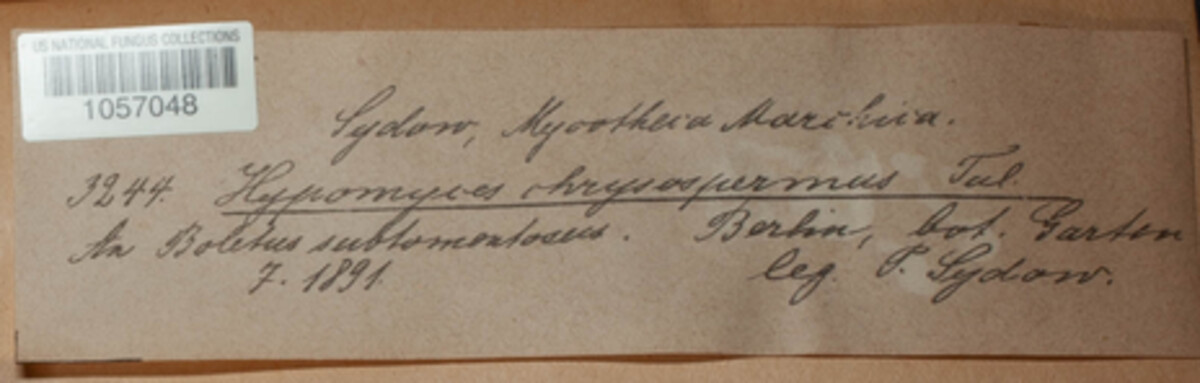 US NATIONAL FUNGUS COLLECTIONS
1057048
Sydow, Mycotheca Marchica.
3244. Hypomyces chrysospermus Tul.
An Boletus subtomentosus. Berlin, bot. Garten
7. 1891. leg. P. Sydow.